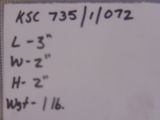 KSC 735/1/072
L-3"
W-2"
H-2"
Wgt-1 lb.